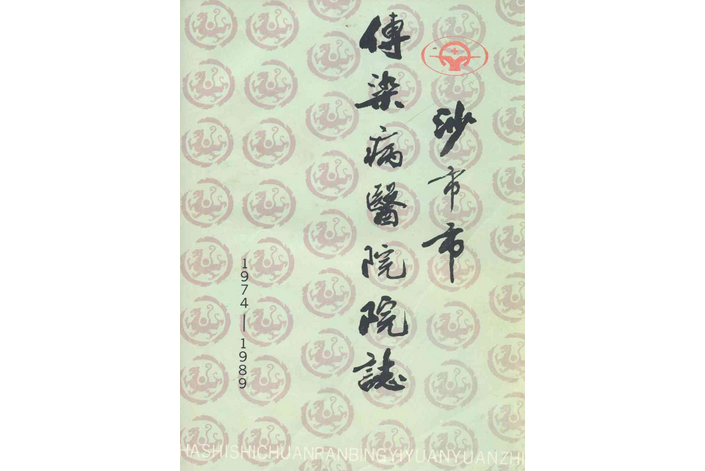 沙市市
傳染病醫院院誌
1974—1989
HASHISHICHUANRANBINGYIYUANYUANZHI